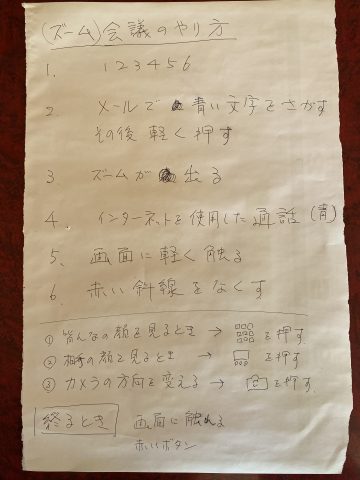 (ズーム)会議のやり方
1. 123456
2. メールで青い文字をさがす
その後軽く押す
3. ズームが出る
4 インターネットを使用した通話(青)
5. 画面に軽く触る
6. 赤い斜線をなくす
① 皆んなの顔を見るとき → を押す
② 相手の顔を見るとき → を押す
③ カメラの方向を変える → を押す
終るとき 画面に触れる
赤いボタン